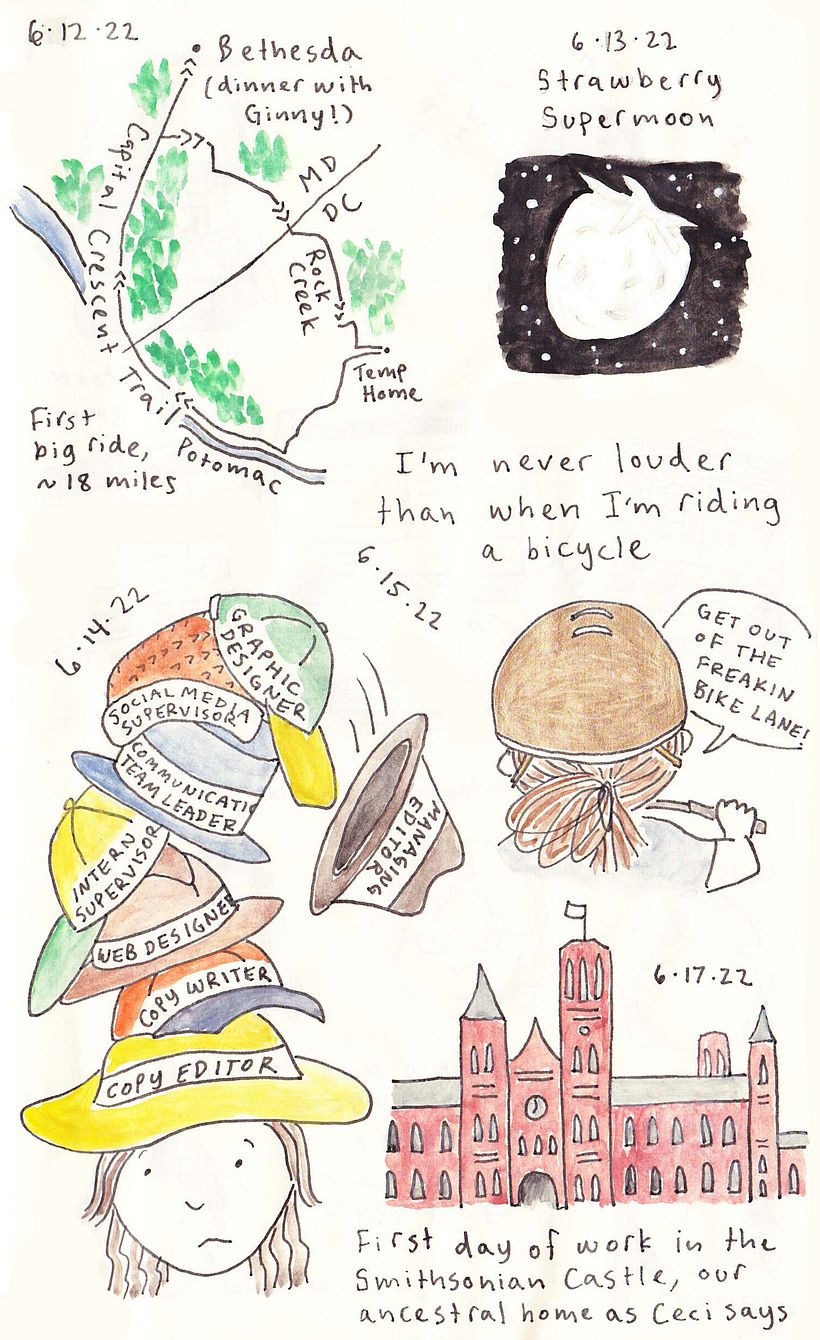 6.12.22
Bethesda
(dinner with
Ginny!)
Capital Crescent Trail
MD
DC
Rock
Creek
Temp
Home
Potomac
First
big ride,
~18 miles
6.13.22
Strawberry
Supermoon
I'm never louder
than when I'm riding
a bicycle
6.15.22
GET OUT
OF THE
FREAKIN
BIKE LANE!
6.14.22
GRAPHIC
DESIGNER
SOCIAL MEDIA
SUPERVISOR
COMMUNICATIO
TEAM LEADER
INTERN
SUPERVISOR
WEB DESIGNER
COPY WRITER
COPY EDITOR
MANAGING
EDITOR
6.17.22
First day of work in the
Smithsonian Castle, our
ancestral home as Ceci says